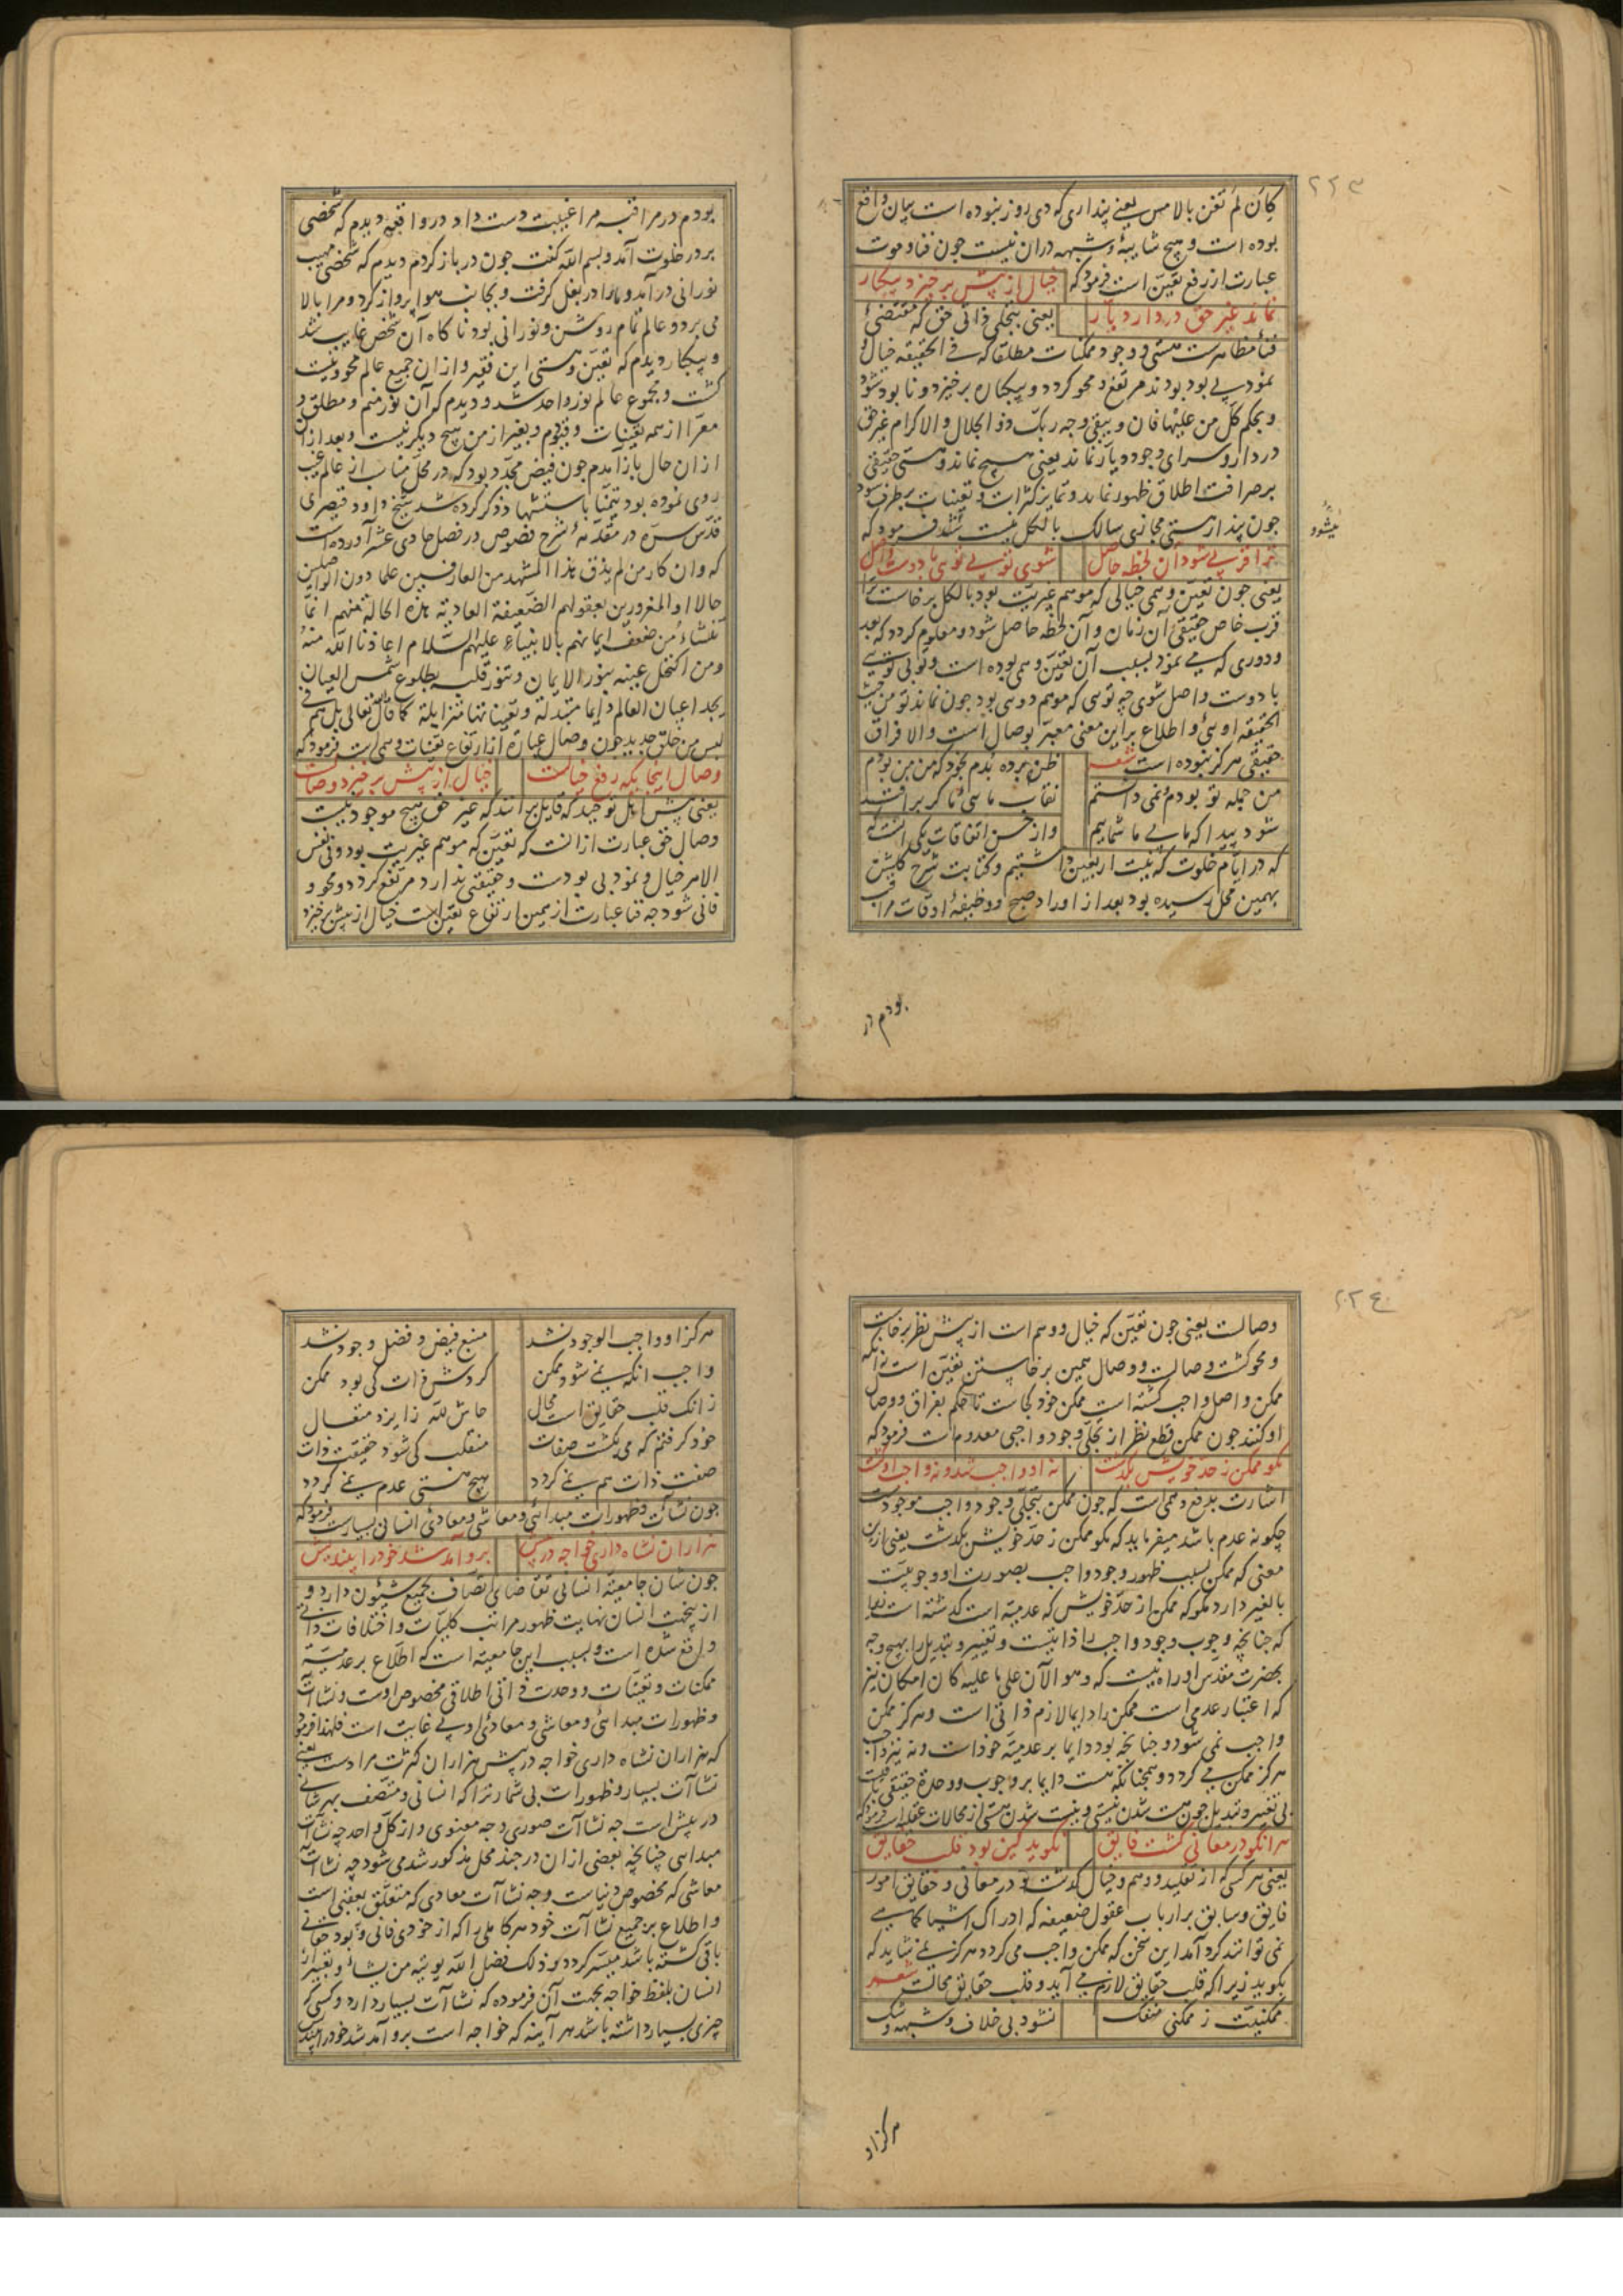 ۲۲۳
کان لم تغن بالامس یعنی پنداری که دی روز نبوده است بیان واقع
بوده است و هیچ شایبه و شبهه دران نیست چون فنا و موت
عبارت از رفع تعین است فرمود که خیال از پیش برخیزد بیکبار
نماند غیر حق در دار دیار یعنی بتجلی ذاتی حق که مقتضی
فناء مظاهرست هستی و وجود ممکنات مطلقا که فی الحقیقه خیال و
نمود بی بود بودند مرتفع و محو گردد و بیکبار برخیزد و نابود شود
و بحکم کل من علیها فان و یبقی وجه ربک ذو الجلال و الاکرام غیر حق
در دار و سرای وجود دیار نماند یعنی هیچ نماند و هستی حقیقی
بر صرافت اطلاق ظهور نماید و تمایز کثرات و تعینات برطرف شود
میشود
چون پندار هستی مجازی سالک بالکل نیست شد فرمود که
ترا قربی شود آن لحظه حاصل شوی تو بی توئی با دوست واصل
یعنی چون تعین وهمی خیالی که موهم غیریت بود بالکل برخاست ترا
قرب خاص حقیقی آن زمان و آن لحظه حاصل شود و معلوم گردد که بعد
و دوری که می نمود بسبب آن تعین وهمی بوده است و تو بی توئی
با دوست واصل شوی چه توئی که موهم دوئی بود چون نماند تو من حیث
الحقیقه اوئی و اطلاع بر این معنی معبر بوصال است و الا فراق
حقیقی هرگز نبوده است شعر ظن برده بدم بخود که من من بودم
من جمله تو بودم و نمی دانستم نقاب مائی ما گر برافتد
شود پیدا که ما بی ما شماییم و از حسن اتفاقات یکی آنست که
که در ایام خلوت که نیت اربعین داشتیم و کتابت شرح گلشن
بهمین محل رسیده بود بعد از اوراد صبح و وظیفه اوقات مراقب
بودم در
بودم در مراقبه مرا غیبت دست داد در واقعه دیدم که شخصی
بر در خلوت آمد و بسم الله گفت چون در باز کردم دیدم که شخصی مهیب
نورانی درآمد و ما را در بغل گرفت و بجانب هوا پرواز کرد و مرا بالا
می برد و عالم تمام روشن و نورانی بود ناگاه آن شخص غایب شد
و بیکبار دیدم که تعین و هستی این فقیر و ازان جمیع عالم محو و نیست
گشت و مجموع عالم نور واحد شد و دیدم که آن نور منم و مطلق و
معرا از همه تعینات و قیودم و بغیر از من هیچ دیگر نیست و بعد ازان
ازان حال باز آمدم چون فیض مجدد بود که در محل مناسب از عالم غیب
روی نموده بود تیمنا باستشهاد ذکر کرده شد شیخ داود قیصری
قدس سره در مقدمه شرح فصوص در فصل حادی عشر آورده است
که و ان کان من لم یذق هذا المشهد من العارفین علما دون الواصلین
حالا او المغرورین بعقولهم الضعیفة العادیة هذه الحالة منهم انما
نشاء من ضعف ایمانهم بالانبیاء علیهم السلام اعاذنا الله منه
و من اکتحل عینه بنور الایمان و تنور قلبه بطلوع شمس العیان
یجد اعیان العالم دایما متبدلة و تعیناتها متزایلة کما قال تعالی بل هم فی
لبس من خلق جدید چون وصال عبارة از ارتفاع تعینات وهمی است فرمود که
وصال اینجایگه رفع خیالست خیال از پیش برخیزد وصالست
یعنی پیش اهل توحید که قایل براند که غیر حق هیچ موجود نیست
وصال حق عبارت ازانست که تعین که موهم غیریت بود و فی نفس
الامر خیال و نمود بی بودست و حقیقتی ندارد مرتفع گردد و محو و
فانی شود چه فنا عبارت از همین ارتفاع تعین است خیال از پیش برخیزد
۲۲۴
وصالست یعنی چون تعین که خیال و وهم است از پیش نظر برخاست
و محو گشت وصالست و وصال همین برخاستن تعین است نه آنکه
ممکن واصل واجب گشته است ممکن خود کجاست تا حکم بفراق و وصال
او کنند چون ممکن قطع نظر از تجلی وجود واجبی معدوم است فرمود که
مگو ممکن ز حد خویش بگذشت نه او واجب شد و نه واجب او گشت
اشارت بدفع وهمی است که چون ممکن بتجلی وجود واجب موجودست
چگونه عدم باشد میفرماید که مگو ممکن ز حد خویش بگذشت یعنی ازین
معنی که ممکن بسبب ظهور وجود واجب بصورت او وجوبیت
بالغیر دارد مگو که ممکن از حد خویش که عدمیة است گذشته است
که چنانچه وجوب وجود واجب را ذاتیست و تغییر و تبدیل را بهیچ وجه
بحضرت مقدس او راه نیست که و هو الآن علی ما علیه کان امکان نیز
که اعتبار عدمی است ممکن را دایما لازم ذاتی است و هرگز ممکن
واجب نمی شود و چنانچه بود دایما بر عدمیة خود است و نه نیز واجب
هرگز ممکن می گردد و همچنانکه هست دایما بر وجوب و وحدة حقیقی ثابت
بی تغییر و تبدیل چون هست شدن نیستی و نیست شدن هستی از محالات عقلیه است فرمود که
هر آنکو در معانی گشت فایق نگوید کین بود قلب حقایق
یعنی هر کسی که از تقلید و وهم و خیال گذشت و در معانی و حقایق امور
فایق و سابق بر ارباب عقول ضعیفه که ادراک اشیا کماهی
نمی توانند کرد آمد این سخن که ممکن واجب می گردد هرگز نمی شاید که
بگوید زیرا که قلب حقایق لازم می آید و قلب حقایق محالست شعر
ممکنیت ز ممکنی منفک نشود بی خلاف و شبهه و شک
هرگز او
هرگز او واجب الوجود نشد منبع فیض و فضل و جود نشد
واجب آنکه نمی شود ممکن گردش ذات کی بود ممکن
زانکه قلب حقایق است محال حاش لله ز ایزد متعال
خود گرفتم که می بگشت صفات منقلب کی شود حقیقت ذات
صفت ذات هم نمی گردد هیچ هستی عدم نمی گردد
چون نشآت و ظهورات مبدائی و معاشی و معادی انسانی بسیارست فرمود که
هزاران نشاه داری خواجه در پیش برو آمد شد خود را بیندیش
چون شان جامعیة انسانی تقاضای اتصاف بجمیع شیون دارد و
ازینجهت انسان نهایت ظهور مراتب کلیات و اختلافات ذاتی
واقع شده است و بسبب این جامعیة است که اطلاع بر عدمیة
ممکنات و تعینات و وحدت ذاتی اطلاقی مخصوص اوست و نشآت
و ظهورات مبدائی و معاشی و معادی او بی غایت است فلهذا فرمود
که هزاران نشاه داری خواجه در پیش هزاران کثرت مرادست یعنی
نشاآت بسیار و ظهورات بی شمار ترا که انسانی و متصف بهر شانی
در پیش است چه نشاآت صوری و چه معنوی و از کل واحد چه نشآت
مبدایی چنانچه بعضی ازان در چند محل مذکور شد می شود چه نشاآت
معاشی که مخصوص دنیاست و چه نشاآت معادی که متعلق بعقبی است
و اطلاع بر جمیع نشاآت خود هر کاملی را که از خودی فانی و بود حقانی
باقی گشته باشد میسر گردد و ذلک فضل الله یوتیه من یشاء و تعبیر از
انسان بلفظ خواجه بجهت آن فرموده که نشاآت بسیار دارد و کسی که
چیزی بسیار داشته باشد هر آینه که خواجه است برو آمد شد خود را بیندیش